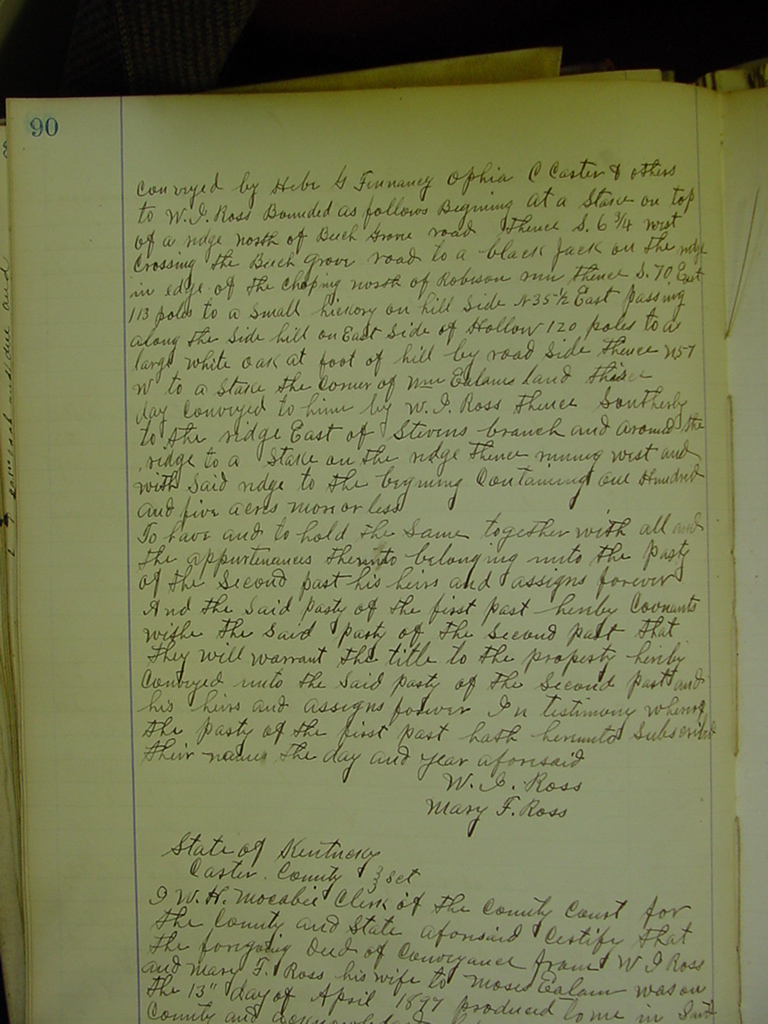 90
Conveyed by Hebe G Finnaney Ophia C Carter & others
to W. I. Ross Bounded as follows Begining at a Stake on top
of a ridge north of Beech Grove road Thence S. 6 3/4 west
Crossing the Beech Grove road to a black Jack on the ridge
in edge of the Choping north of Robison run Thence S. 70 East
113 poles to a Small hickory on hill Side N 35 1/2 East passing
along the Side hill on East Side of Hollow 120 poles to a
large white oak at foot of hill by road Side Thence N 57
W to a Stake the Corner of Wm Ealams land this
day Conveyed to hime by W. I. Ross Thence Southerly
to the ridge East of Stevens branch and around the
ridge to a Stake on the ridge Thence runing west and
with Said ridge to the begining Containing one Hundred
and five acres more or less
To have and to hold the Same together with all and
the appurtenances thereunto belonging unto the party
of the Second part his heirs and assigns forever
And the Said party of the first part hereby Covnants
withe the Said party of the Second part that
They will warrant the title to the property hereby
Conveyed unto the Said party of the Second part and
his heirs and assigns forever In testimony whereof
the party of the first part hath hereunto Subscribed
their names the day and year aforesaid
W. I. Ross
Mary F. Ross
State of Kentucky
Carter County } Sct
I W. H. Mocabee Clerk of the County Court for
the County and State aforesaid Certify that
the foregoing Deed of Conveyance from W I Ross
and Mary F. Ross his wife to Moses Ealam was on
the 13" day of April 1897 produced to me in
County and acknowledged